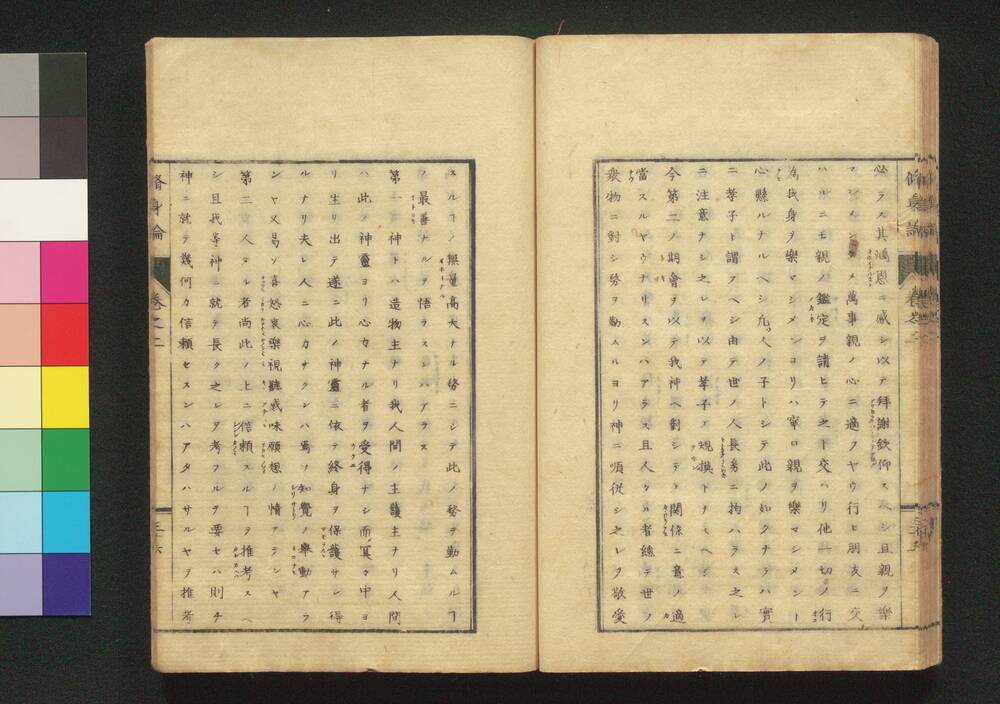 必ラス其鴻恩ニ感シ以テ拜謝欽仰スヘシ且親ヲ樂
マシメンタメ萬事親ノ心ニ適フヤウ行ヒ朋友ニ交
ハルニモ親ノ鑑定ヲ請ヒテ之ト交ハリ他一切ノ行
為我身ヲ樂マシメンヨリハ寧ロ親ヲ樂マシメント
心懸ルナルヘシ凡ソ人ノ子トシテ此ノ如クナラハ實
ニ孝子ト謂フヘシ由テ世ノ人長幼ニ拘ハラス之レ
ニ注意ナシ之レヲ以テ孝子ノ規摸トナスヘシ
今第二ノ期會ヲ以テ我神ヘ對シテノ關係ニ意ノ適
當スルヤウナリスンハアラス且人タル者總テ世ノ
衆物ニ對シ努ヲ勤ムルヨリ神ニ順從シ之レヲ敬愛
スルヿノ無量高大ナル努ニシテ此ノ努ヲ勤ムルヿ
ノ最善ナルヲ悟ラスンハアラス
第一 神トハ造物主ナリ我人間ノ主護主ナリ人間
ハ此ノ神靈ヨリ心カナル者ヲ受得ナシ而〆冥々中ヨ
リ生リ出テ遂ニ此ノ神靈ニ依テ終身ヲ保護サレ得
ルナリ夫レ人ニ心カナクンハ焉ソ知覺ノ擧動アラ
ンヤ又曷ソ喜怒哀樂視聽感味願想ノ情アランヤ
第二 人タル者尚此ノ上ニ信頼スルヿヲ推考スヘ
シ且我等神ニ就テ長ク之レヲ考フルヲ要セハ則チ
神ニ就テ幾何カ信頼セスンハアタハサルヤヲ推考
脩身論
卷之二